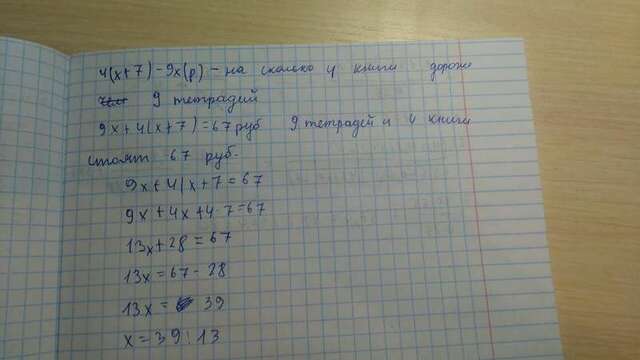 4(x+7)-9x(р) - на сколько 4 книги дороже
чем 9 тетрадей
9x+4(x+7)=67руб 9 тетрадей и 4 книги
стоят 67 руб.
9x+4(x+7=67
9x+4x+4·7=67
13x+28=67
13x=67-28
13x= 39
x=39:13